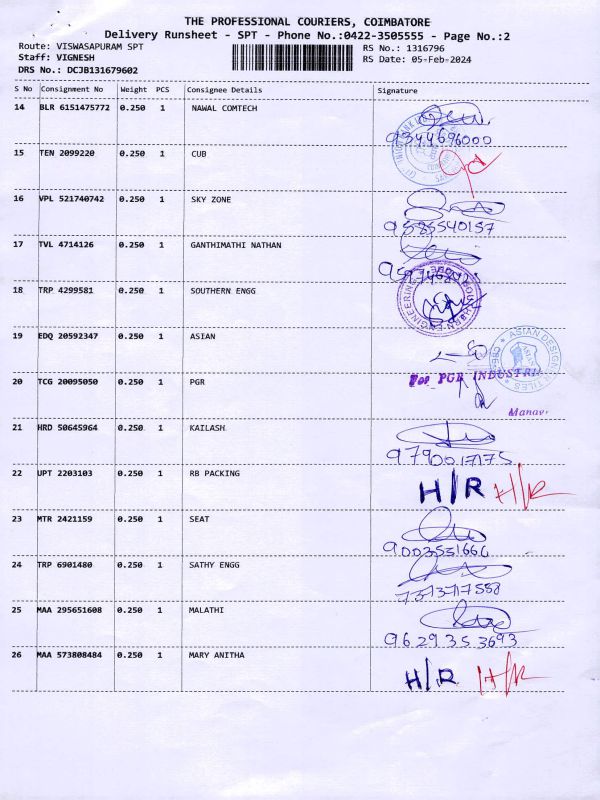 THE PROFESSIONAL COURIERS, COIMBATORE
Delivery Runsheet - SPT - Phone No.:0422-3505555 - Page No.:2
Route: VISWASAPURAM SPT
RS No.: 1316796
Staff: VIGNESH
RS Date: 05-Feb-2024
DRS No.: DCJB131679602
S No Consignment No Weight PCS Consignee Details Signature
14 BLR 6151475772 0.250 1 NAWAL COMTECH
9344696000
15 TEN 2099220 0.250 1 CUB
16 VPL 521740742 0.250 1 SKY ZONE
9585540157
17 TVL 4714126 0.250 1 GANTHIMATHI NATHAN
18 TRP 4299581 0.250 1 SOUTHERN ENGG
19 EDQ 20592347 0.250 1 ASIAN
ASIAN DESIGNER TILES
20 TCG 20095050 0.250 1 PGR
For PGR INDUSTRI
21 HRD 50645964 0.250 1 KAILASH
9790017175
22 UPT 2203103 0.250 1 RB PACKING
H/R H/R
23 MTR 2421159 0.250 1 SEAT
9003531666
24 TRP 6901480 0.250 1 SATHY ENGG
7373717558
25 MAA 295651608 0.250 1 MALATHI
9629353693
26 MAA 573808484 0.250 1 MARY ANITHA
H/R H/R